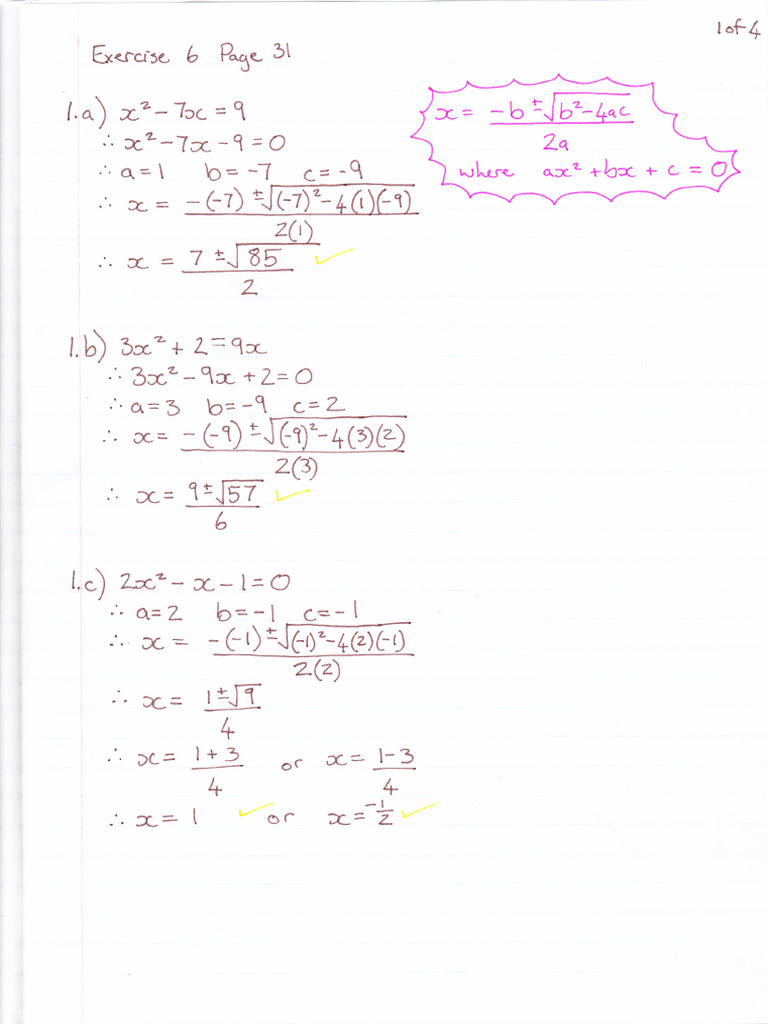 1 of 4
Exercise 6 Page 31
x = (-b ± √(b² - 4ac)) / 2a
where ax² + bx + c = 0
1.a) x² - 7x = 9
∴ x² - 7x - 9 = 0
∴ a = 1 b = -7 c = -9
∴ x = (-(-7) ± √((-7)² - 4(1)(-9))) / 2(1)
∴ x = (7 ± √85) / 2 ✓
1.b) 3x² + 2 = 9x
∴ 3x² - 9x + 2 = 0
∴ a = 3 b = -9 c = 2
∴ x = (-(-9) ± √((-9)² - 4(3)(2))) / 2(3)
∴ x = (9 ± √57) / 6 ✓
1.c) 2x² - x - 1 = 0
∴ a = 2 b = -1 c = -1
∴ x = (-(-1) ± √((-1)² - 4(2)(-1))) / 2(2)
∴ x = (1 ± √9) / 4
∴ x = (1 + 3) / 4 or x = (1 - 3) / 4
∴ x = 1 ✓ or x = -1/2 ✓